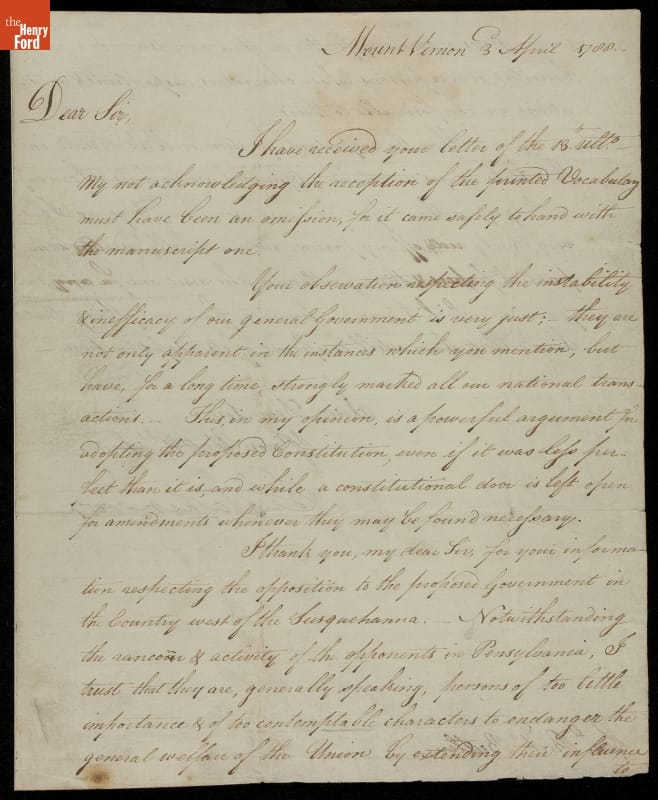 the
Henry
Ford
Mount Vernon 3 April 1788
Dear Sir,
I have received your letter of the 18th ulto.
My not acknowledging the reception of the printed Vocabulary
must have been an omission, for it came safely to hand with
the manuscript one.
Your observation respecting the instability
& inefficacy of our general Government is very just; — they are
not only apparent in the instances which you mention, but
have, for a long time, strongly marked all our national trans-
actions. — This, in my opinion, is a powerful argument for
adopting the proposed Constitution, even if it was less per-
fect than it is, and while a constitutional door is left open
for amendments whenever they may be found necessary.
I thank you, my dear Sir, for your informa-
tion respecting the opposition to the proposed Government in
the Country west of the Susquehanna. — Notwithstanding
the rancour & activity of the opponents in Pensylvania, I
trust that they are, generally speaking, persons of too little
importance & of too contemptable characters to endanger the
general welfare of the Union by extending their influence
to